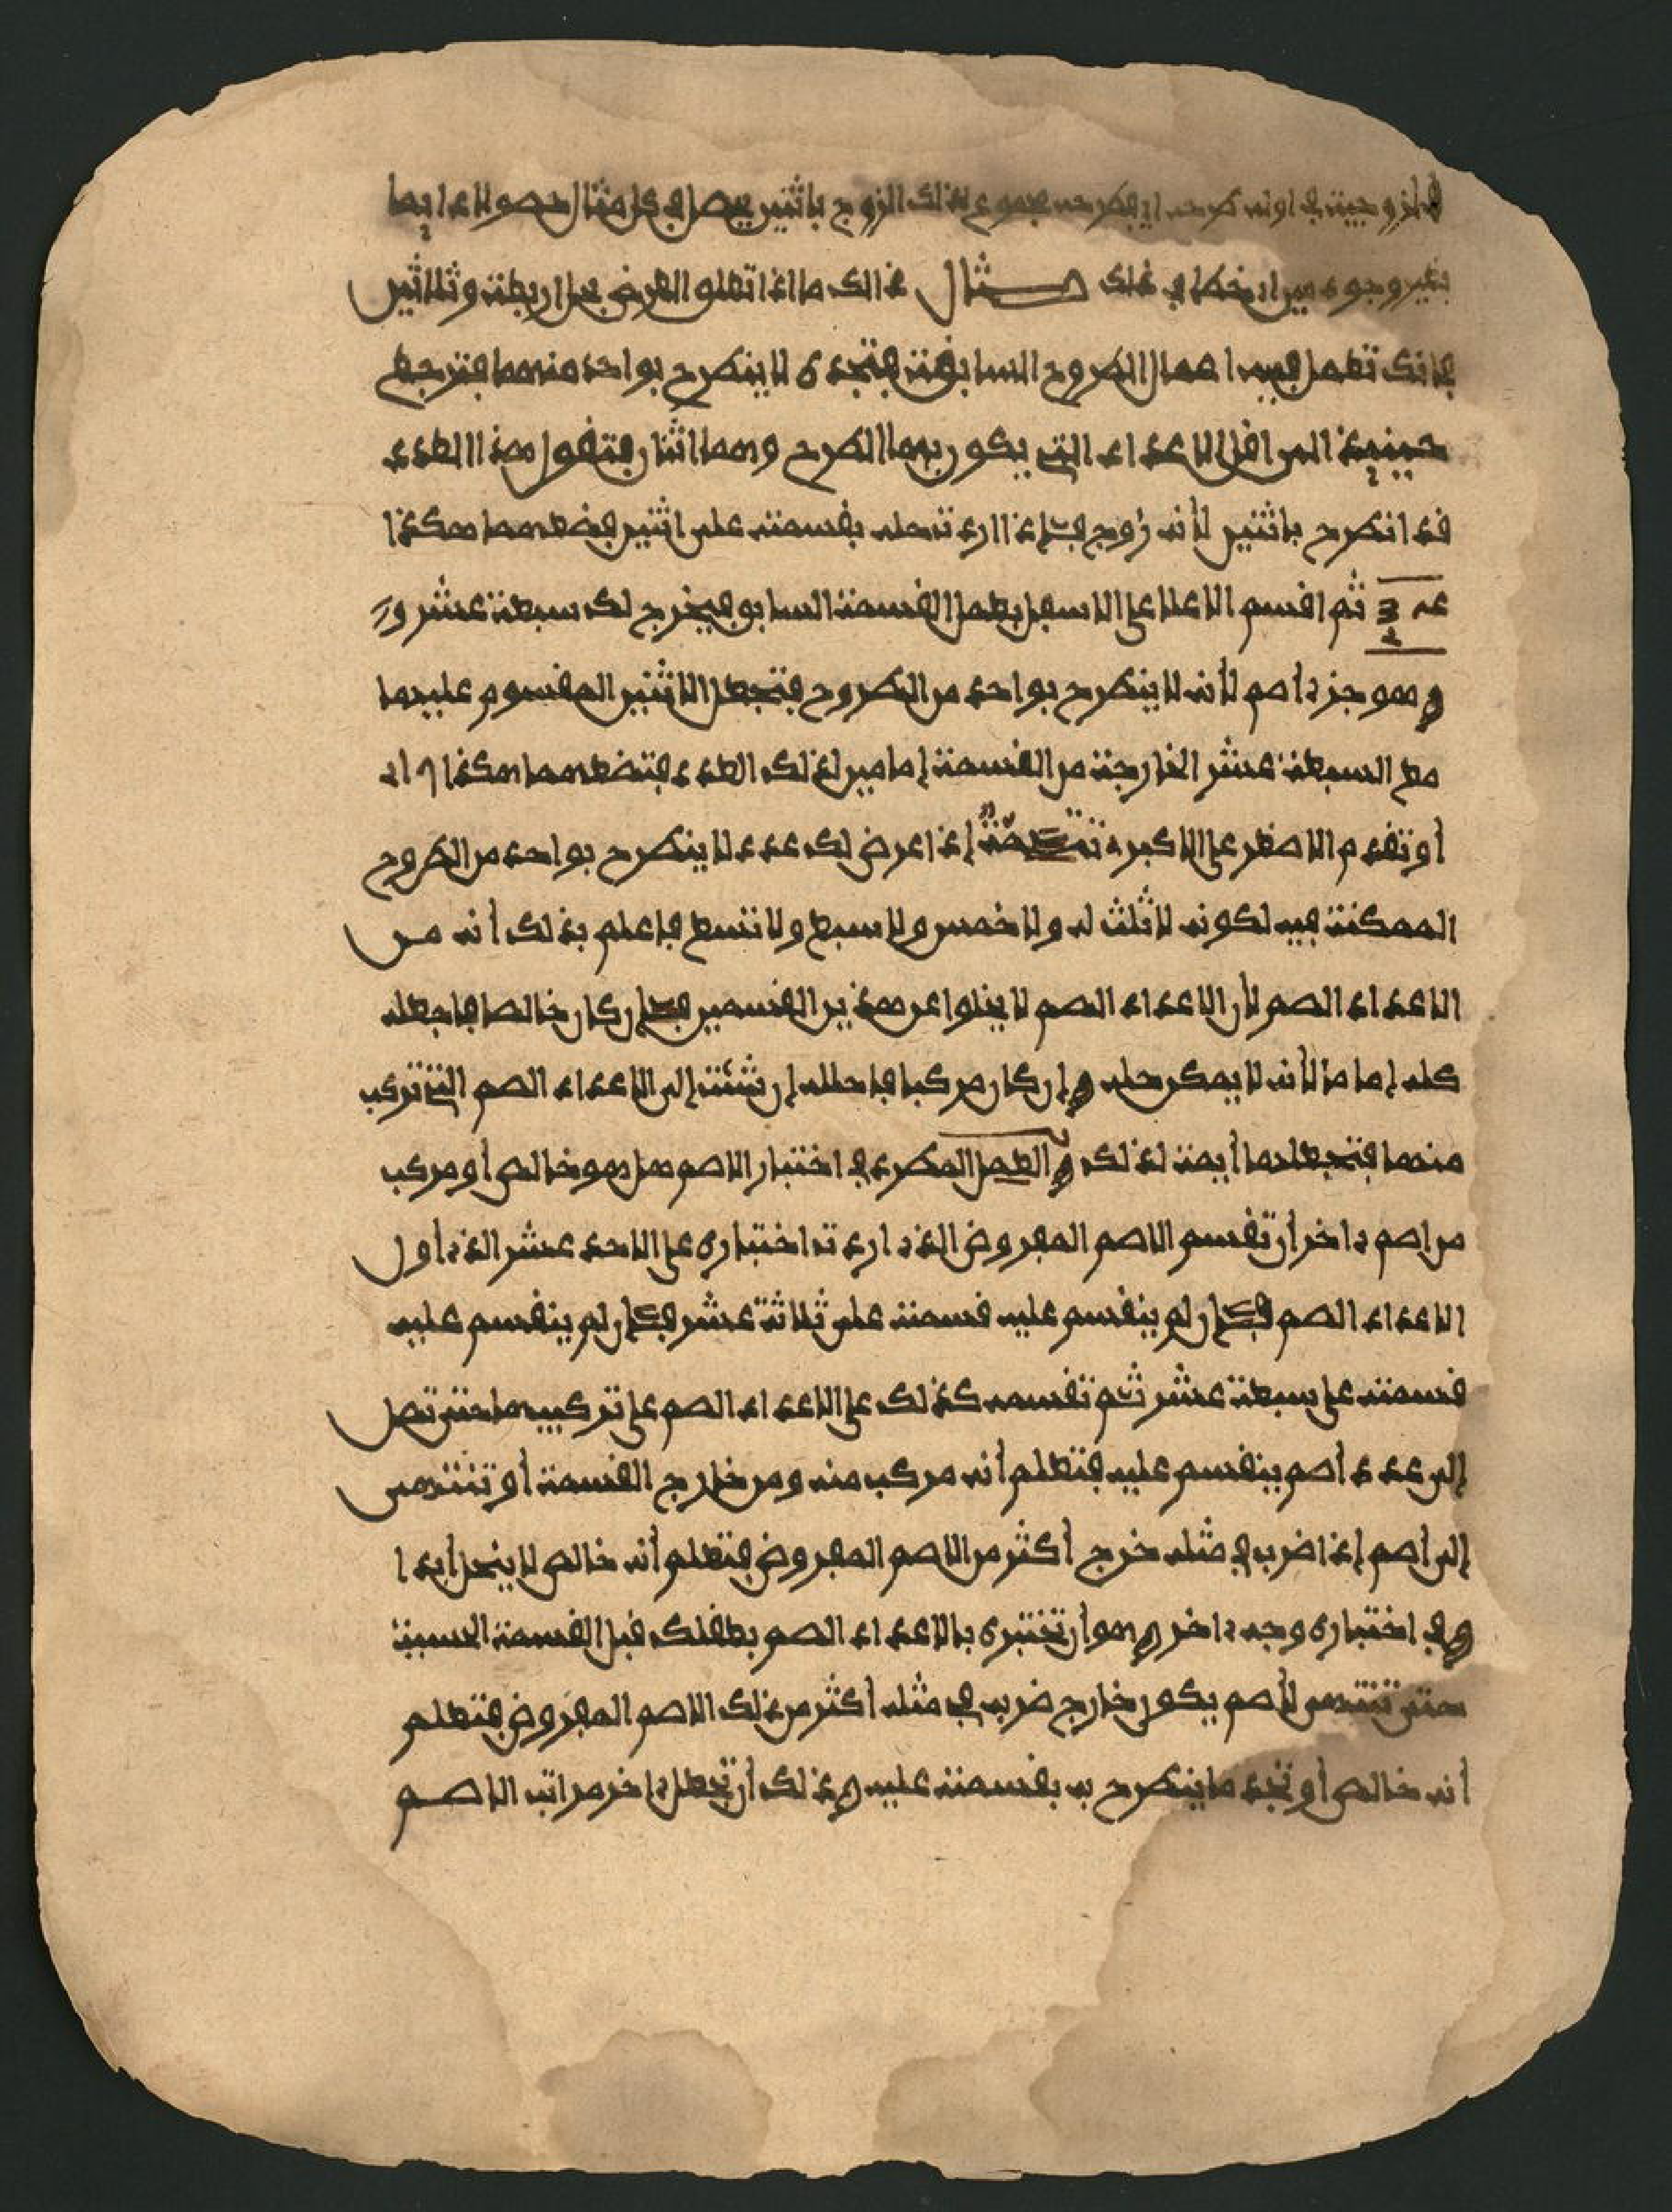 الزوجية في اوله طرحه اي يطرحه مجموع لذلك الزوج باثنين يصل في كل مثال حصولا دايما
بغير وجود مين ار خطا في ذلك مثال ذالك ما اذا تعلو الغرض بحل اربعة وثلاثين
فإنك تعمل فيه اعمال الطروح السابقة فتجده لا ينطرح بواحد منهما فترجع
حينيذ الى اقل الاعداد التي يكون بها الطرح وهما اثنان فتقول هذا العدد
قد انطرح باثنين لأنه زوج فإذا اردت حله بقسمته على اثنين فضعهما هكذا
ثم اقسم الاعلا على الاسفل بعمل القسمة السابق فيخرج لك سبعة عشر
وهو جزء أصم لأنه لا ينطرح بواحد من الطروح فتجعل الاثنين المقسوم عليهما
مع السبعة عشر الخارجة من القسمة إمامين لذلك العدد فتضعهما هكذا
أو تقدم الاصغر على الاكبر تتمة إذا عرض لك عدد لا ينطرح بواحد من الطروح
الممكنة فيه لكونه لا ثلث له ولا خمس ولا سبع ولا تسع فاعلم بذلك أنه من
الاعداد الصم لأن الاعداد الصم لا يخلوا عن هذين القسمين فإن كان خالصا فاجعله
كله إماما لأنه لا يمكن حله وإن كان مركبا فاحلله إن شئت إلى الاعداد الصم التي تركب
منهما فتجعلهما أيمة لذلك والعمل المطرد في اختبار الاصم هل هو خالص أو مركب
من اصم ءاخر أن تقسم الاصم المفروض الذي اردت اختباره على الاحد عشر الذي أول
الاعداد الصم فإن لم ينقسم عليه قسمته على ثلاثة عشر فإن لم ينقسم عليه
قسمته على سبعة عشر ثم تقسمه كذلك على الاعداد الصم على تركيبها حتى تصل
إلى عدد أصم ينقسم عليه فتعلم أنه مركب منه ومن خارج القسمة أو تنتهى
إلى أصم إذا ضرب في مثله خرج أكثر من الاصم المفروض فتعلم أنه خالص لا ينحل أبدا
وفي اختباره وجه ءاخر وهو أن تختبره بالاعداد الصم بعقلك قبل القسمة الحسية
حتى تنتهى لأصم يكون خارج ضربه في مثله أكثر من ذلك الاصم المفروض فتعلم
أنه خالص أو تجد ما ينطرح به بقسمته عليه وذلك أن تجعل ءاخر مراتب الاصم